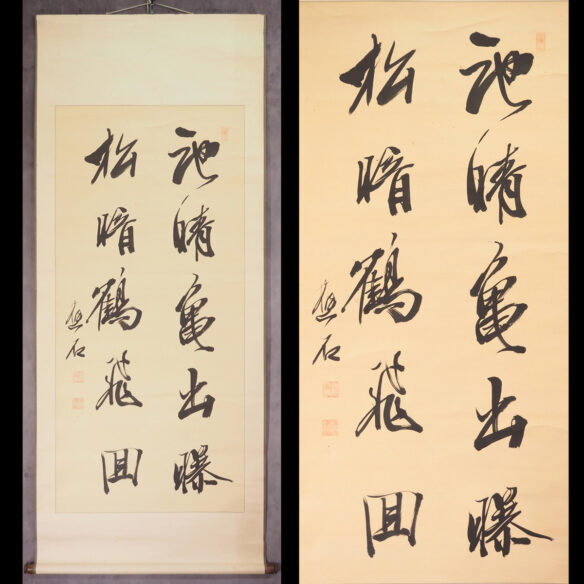 池晴亀出曝
松暗鶴飛回
石
池晴亀出曝
松暗鶴飛回
石